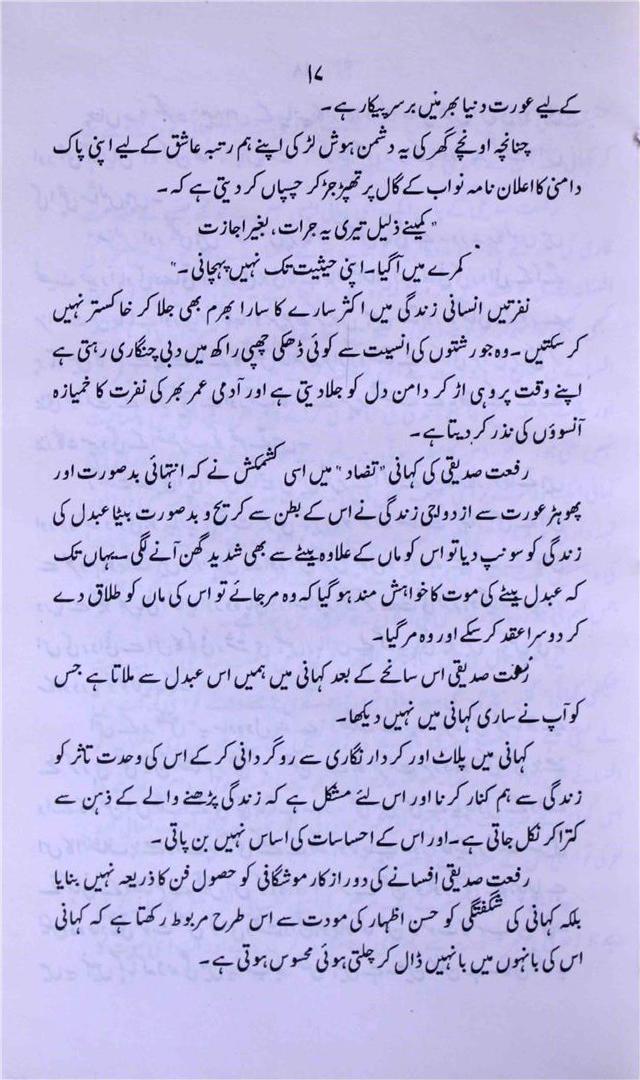 ۱۷
کے لیے عورت دنیا بھر میں برسرپیکار ہے۔
چنانچہ اونچے گھر کی یہ دشمن ہوش لڑکی اپنے ہم رتبہ عاشق کے لیے اپنی پاک
دامنی کا اعلان نامہ نواب کے گال پر تھپڑ جڑ کر چسپاں کر دیتی ہے کہ۔
"کمینے ذلیل تیری یہ جرات، بغیر اجازت
کمرے میں آگیا۔ اپنی حیثیت تک نہیں پہچانی۔"
نفرتیں انسانی زندگی میں اکثر سارے کا سارا بھرم بھی جلا کر خاکستر نہیں
کر سکتیں۔ وہ جو رشتوں کی انسیت سے کوئی ڈھکی چھپی راکھ میں دبی چنگاری رہتی ہے
اپنے وقت پر وہی اڑ کر دامن دل کو جلا دیتی ہے اور آدمی عمر بھر کی نفرت کا خمیازہ
آنسوؤں کی نذر کر دیتا ہے۔
رفعت صدیقی کی کہانی "تضاد" میں اسی کشمکش نے کہ انتہائی بدصورت اور
پھوہڑ عورت سے ازدواجی زندگی نے اس کے بطن سے کریح و بدصورت بیٹا عبدل کی
زندگی کو سونپ دیا تو اس کو ماں کے علاوہ بیٹے سے بھی شدید گھن آنے لگی۔ یہاں تک
کہ عبدل بیٹے کی موت کا خواہش مند ہو گیا کہ وہ مر جائے تو اس کی ماں کو طلاق دے
کر دوسرا عقد کر سکے اور وہ مر گیا۔
رفعت صدیقی اس سانحے کے بعد کہانی میں ہمیں اس عبدل سے ملاتا ہے جس
کو آپ نے ساری کہانی میں نہیں دیکھا۔
کہانی میں پلاٹ اور کردار نگاری سے روگردانی کر کے اس کی وحدت تاثر کو
زندگی سے ہم کنار کرنا اور اس لئے مشکل ہے کہ زندگی پڑھنے والے کے ذہن سے
کترا کر نکل جاتی ہے۔ اور اس کے احساسات کی اساس نہیں بن پاتی۔
رفعت صدیقی افسانے کی دور از کار موشگافی کو حصول فن کا ذریعہ نہیں بنایا
بلکہ کہانی کی شگفتگی کو حسن اظہار کی مودت سے اس طرح مربوط رکھتا ہے کہ کہانی
اس کی بانہوں میں بانہیں ڈال کر چلتی ہوئی محسوس ہوتی ہے۔